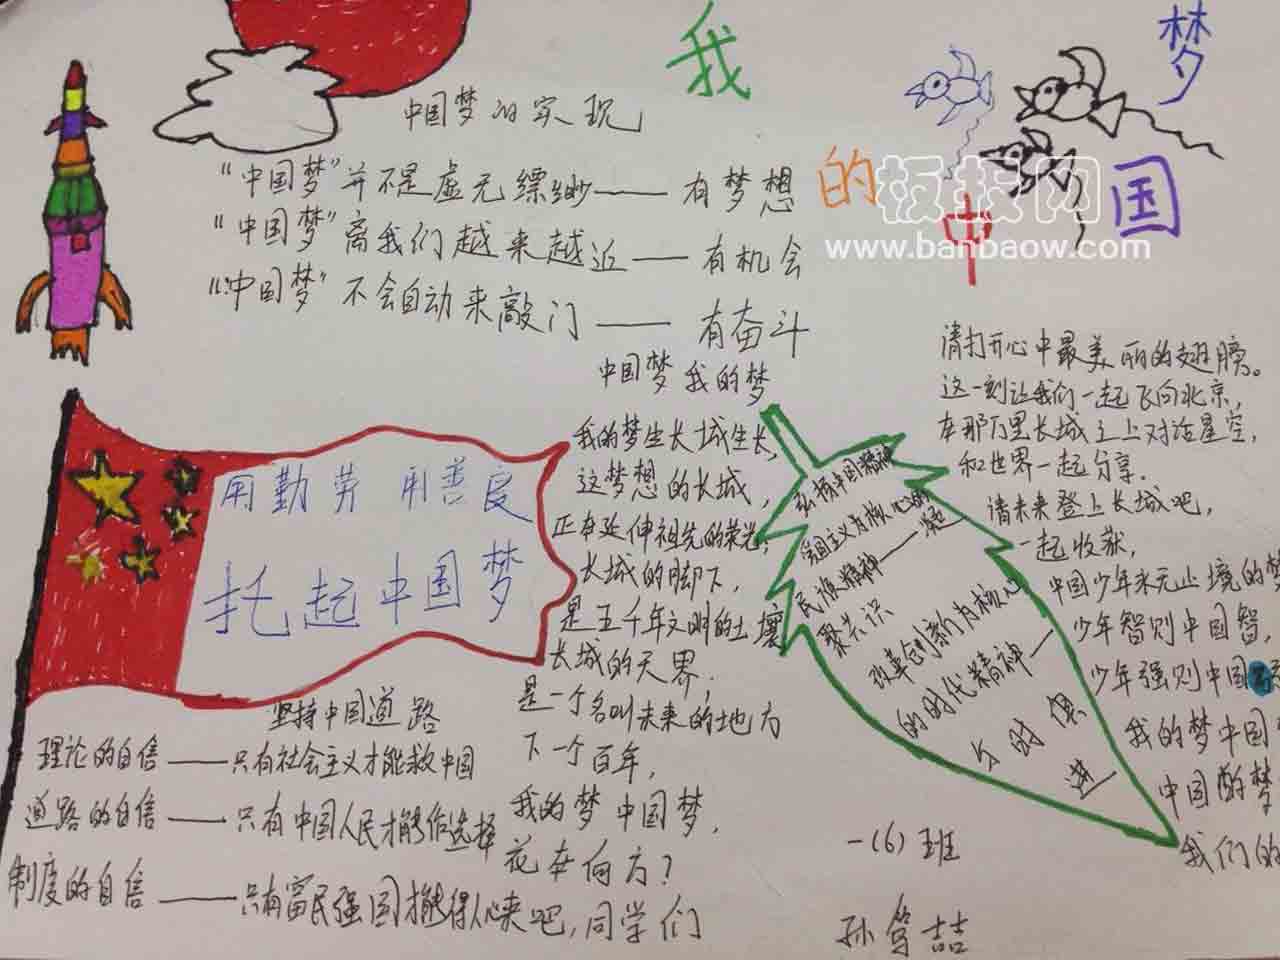 我的中国梦
板报网
www.banbaow.com
中国梦的实现
“中国梦”并不是虚无缥缈——有梦想
“中国梦”离我们越来越近——有机会
“中国梦”不会自动来敲门——有奋斗
用勤劳 用善良
托起中国梦
坚持中国道路
理论的自信——只有社会主义才能救中国
道路的自信——只有中国人民才能作选择
制度的自信——只有富民强国才能得人心
中国梦 我的梦
我的梦生长城生长,
这梦想的长城,
正在延伸祖先的荣光,
长城的脚下,
是五千年文明的土壤
长城的天界,
是一个名叫未来的地方
下一个百年,
我的梦中国梦,
花在何方?
来吧,同学们
请打开心中最美丽的翅膀。
这一刻让我们一起飞向北京,
在那万里长城之上对话星空,
和世界一起分享.
请未来登上长城吧,
一起收获,
中国少年永无止境的梦
少年智则中国智,
少年强则中国
我的梦中国
中国的梦
我们的
弘扬中国精神
爱国主义为核心的
民族精神——凝
聚共识
改革创新为核心
的时代精神——
与时俱
进
一(6)班
孙
喆